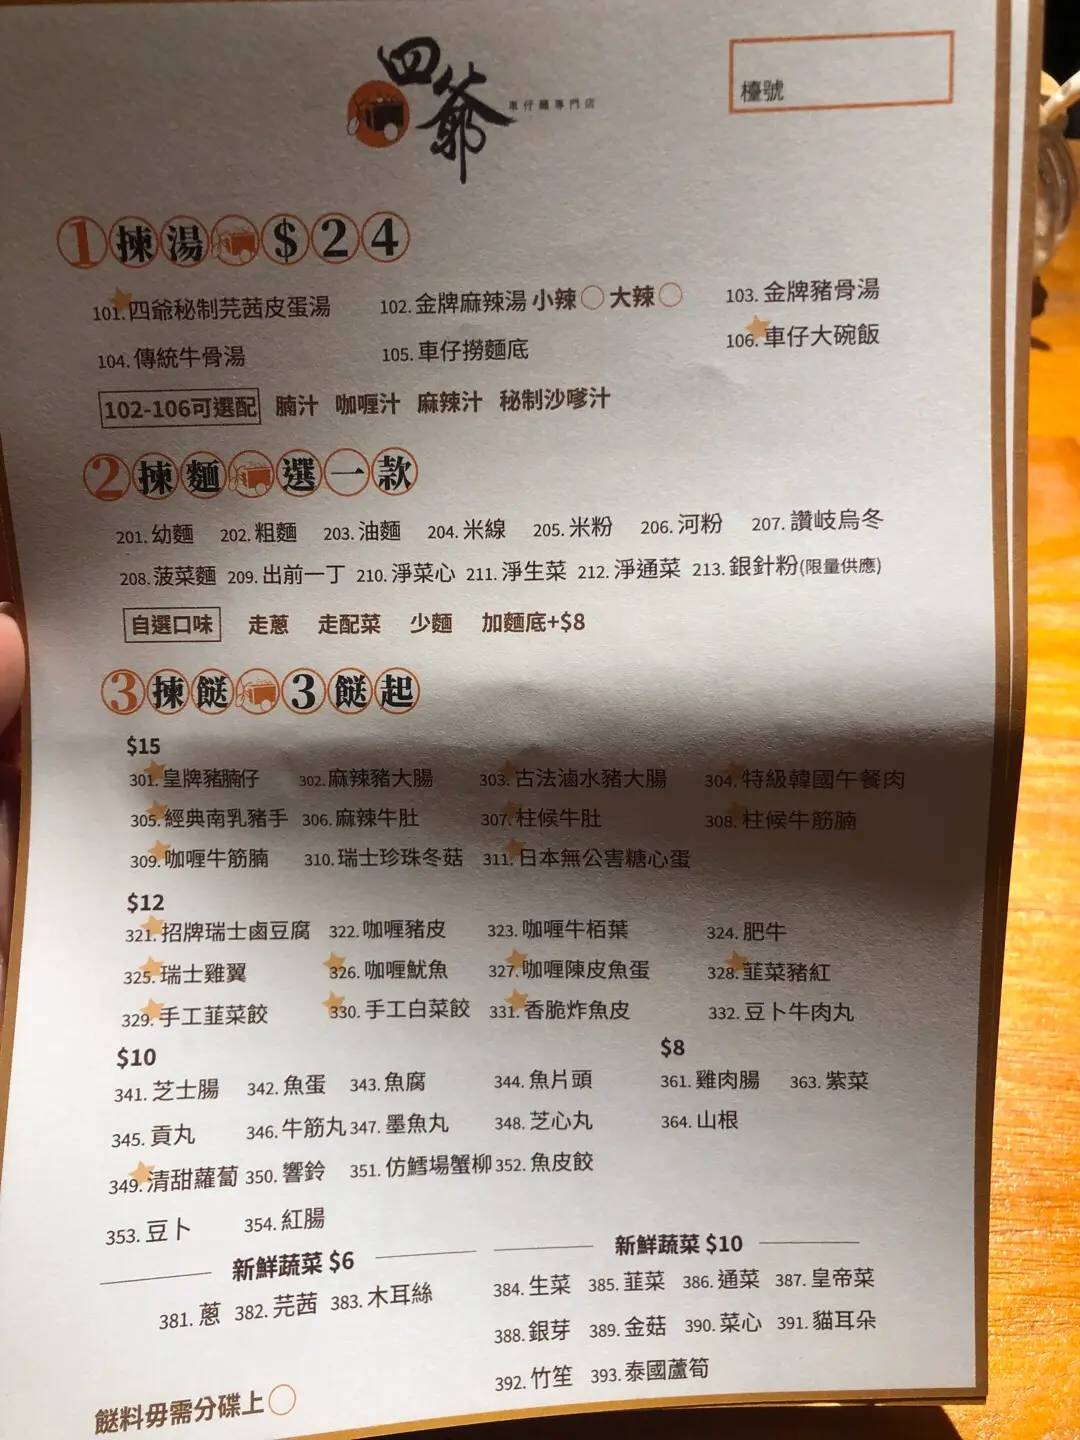 四爺
車仔麵專門店
檯號
1揀湯 $24
101.四爺秘制芫茜皮蛋湯 102.金牌麻辣湯 小辣○ 大辣○ 103.金牌豬骨湯
104.傳統牛骨湯 105.車仔撈麵底 106.車仔大碗飯
102-106可選配 腩汁 咖喱汁 麻辣汁 秘制沙嗲汁
2揀麵 選一款
201.幼麵 202.粗麵 203.油麵 204.米線 205.米粉 206.河粉 207.讚岐烏冬
208.菠菜麵 209.出前一丁 210.淨菜心 211.淨生菜 212.淨通菜 213.銀針粉(限量供應)
自選口味 走蔥 走配菜 少麵 加麵底+$8
3揀餸 3餸起
$15
301.皇牌豬腩仔 302.麻辣豬大腸 303.古法滷水豬大腸 304.特級韓國午餐肉
305.經典南乳豬手 306.麻辣牛肚 307.柱候牛肚 308.柱候牛筋腩
309.咖喱牛筋腩 310.瑞士珍珠冬菇 311.日本無公害糖心蛋
$12
321.招牌瑞士鹵豆腐 322.咖喱豬皮 323.咖喱牛栢葉 324.肥牛
325.瑞士雞翼 326.咖喱魷魚 327.咖喱陳皮魚蛋 328.韮菜豬紅
329.手工韮菜餃 330.手工白菜餃 331.香脆炸魚皮 332.豆卜牛肉丸
$10 $8
341.芝士腸 342.魚蛋 343.魚腐 344.魚片頭 361.雞肉腸 363.紫菜
345.貢丸 346.牛筋丸 347.墨魚丸 348.芝心丸 364.山根
349.清甜蘿蔔 350.響鈴 351.仿鱈場蟹柳 352.魚皮餃
353.豆卜 354.紅腸
新鮮蔬菜 $6
381.蔥 382.芫茜 383.木耳絲
新鮮蔬菜 $10
384.生菜 385.韮菜 386.通菜 387.皇帝菜
388.銀芽 389.金菇 390.菜心 391.貓耳朵
392.竹笙 393.泰國蘆筍
餸料毋需分碟上○